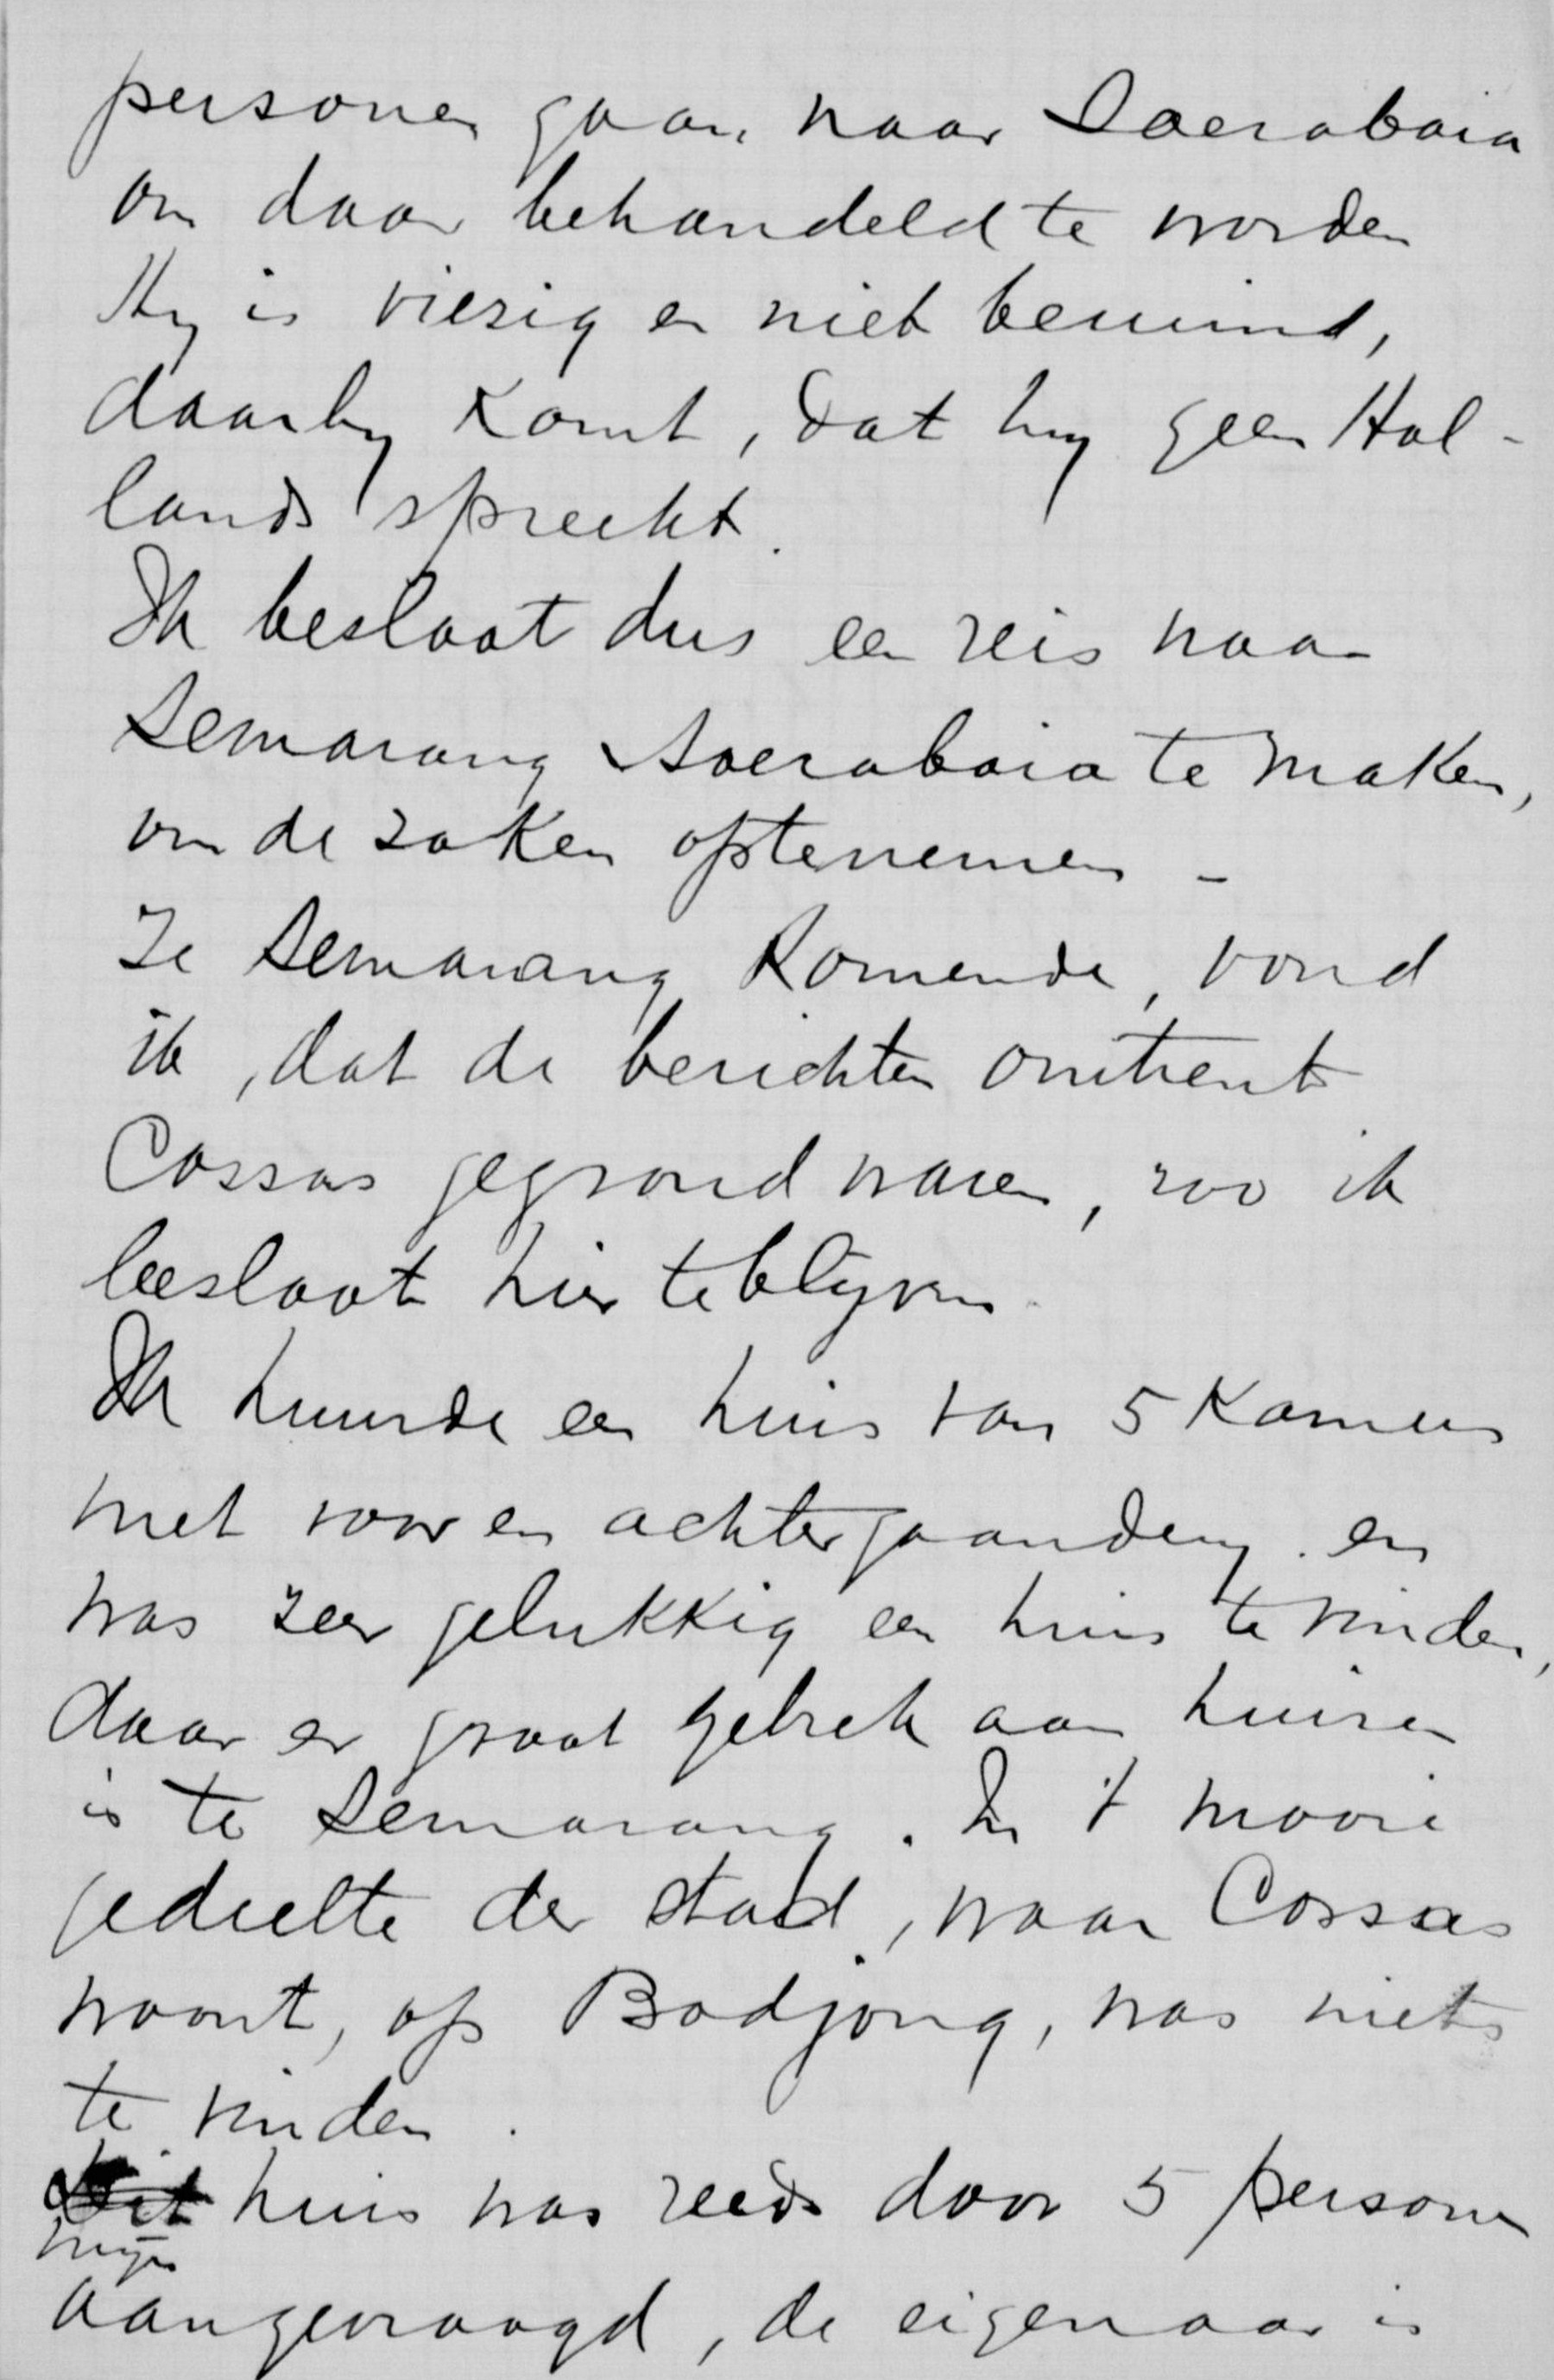 personen gaan naar Soerabaia
om daar behandeld te worden
Hy is viezig en niet bemind,
daarby komt, dat hy geen Hol-
lands spreekt.
Ik besloot dus een reis naar
Semarang Soerabaia te maken,
om de zaken optenemen -
Te Semarang komende, vond
ik, dat de berichten omtrent
Cossas gegrond waren, zoo ik
besloot hier te blyven.
Ik huurde een huis van 5 Kamers
met voor en achtergaandery. en
was zeer gelukkig een huis te vinden,
daar er groot gebrek aan huizen
is te Semarang. In 't mooie
gedeelte der stad, waar Cossas
woont, op Bodjong, was niets
te vinden.
Dit huis was reeds door 5 personen
mijn
aangevraagd, de eigenaar is